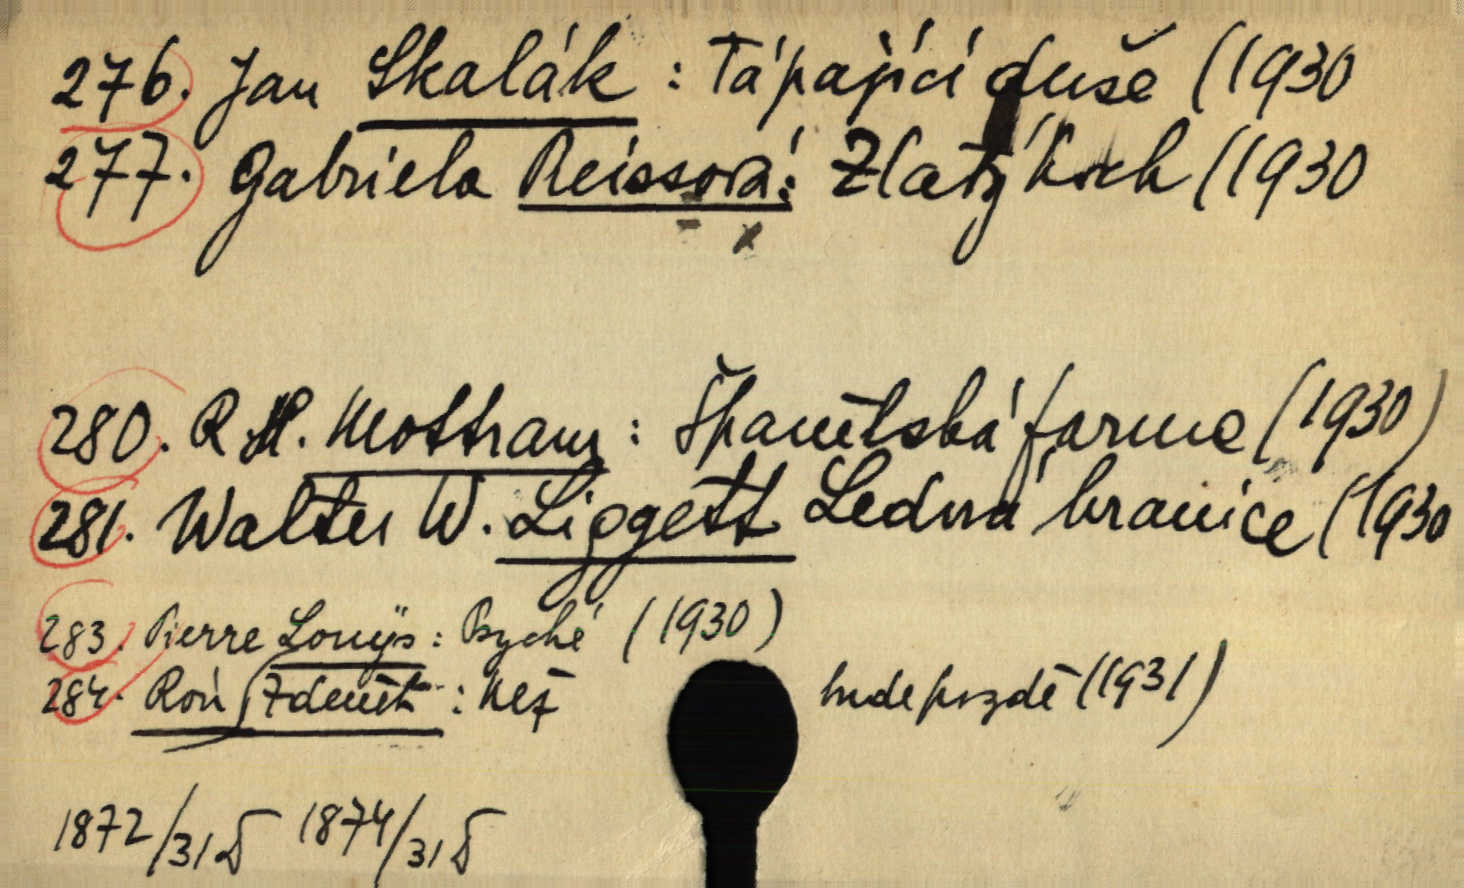 276. Jan Skalák : Tápající duše (1930
277. Gabriela Reissová: Zlatý hoch (1930
280. R.H. Mottram : Španělská farma (1930)
281. Walter W. Liggett Ledová hranice (1930
283. Pierre Louÿs : Psyché (1930)
284. Ron Zdeněk : Než bude pozdě (1931)
1872/31 1874/31